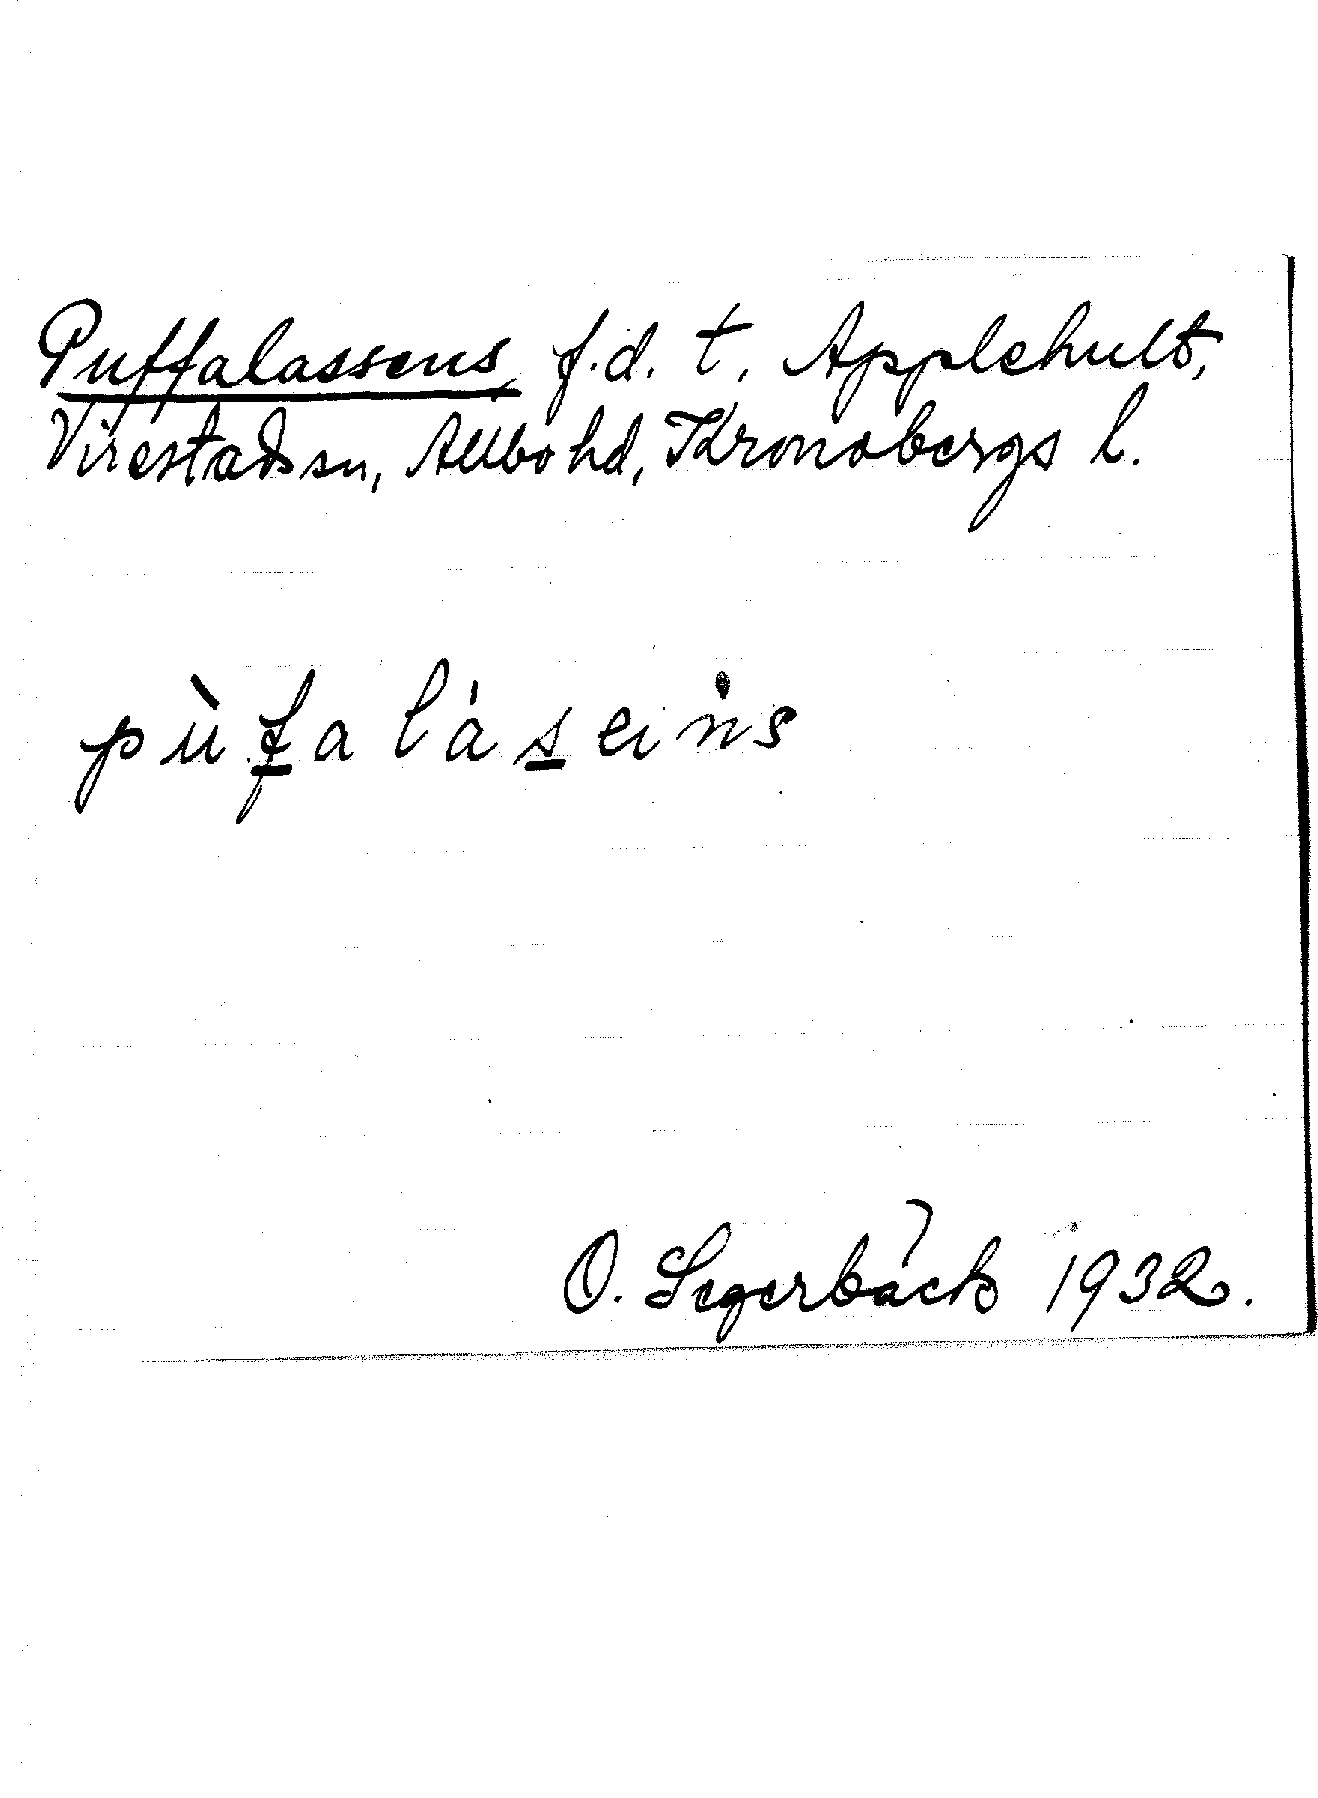 Puffalassens f.d. t, Applehult,
Virestads sn, Allbo hd, Kronobergs l.
pùf̲a làs̲eins
O. Segerbäck 1932.